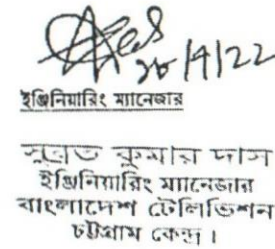 ২৮/৭/22
ইঞ্জিনিয়ারিং ম্যানেজার
সুব্রত কুমার দাস
ইঞ্জিনিয়ারিং ম্যানেজার
বাংলাদেশ টেলিভিশন
চট্টগ্রাম কেন্দ্র।